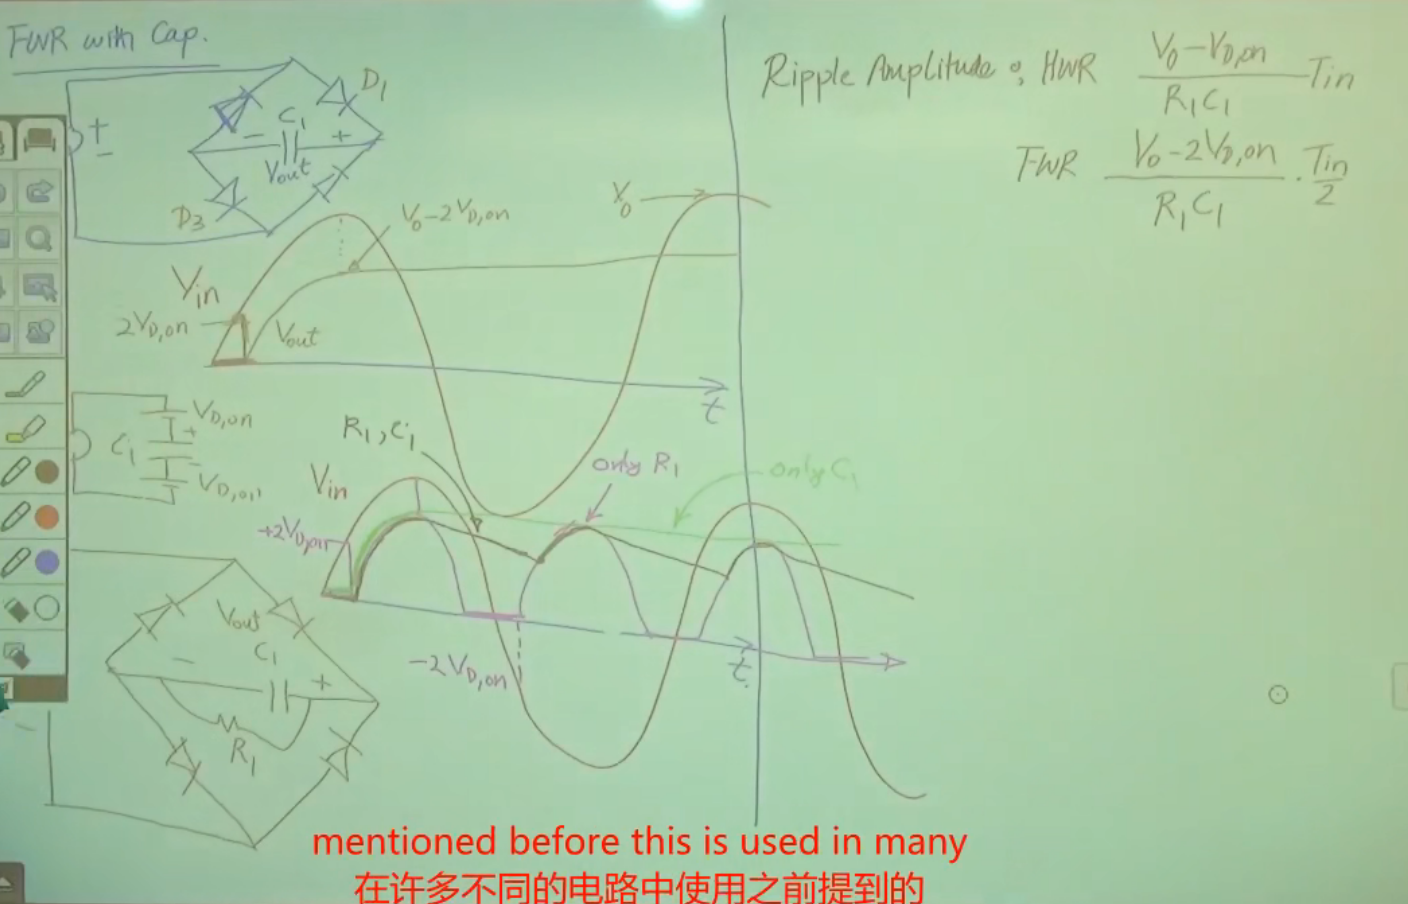 FWR with Cap.
D1
+
−
C1
− +
Vout
D3
V0−2VD,on
V0
Vin
2VD,on
Vout
t
VD,on
C1
+
−
VD,on
R1, C1
Vin
only R1
only C1
+2VD,on
−2VD,on
t
Vout
C1
− +
R1
Ripple Amplitude : HWR (V0−VD,on)/(R1C1) Tin
FWR (V0−2VD,on)/(R1C1) · Tin/2
mentioned before this is used in many
在许多不同的电路中使用之前提到的